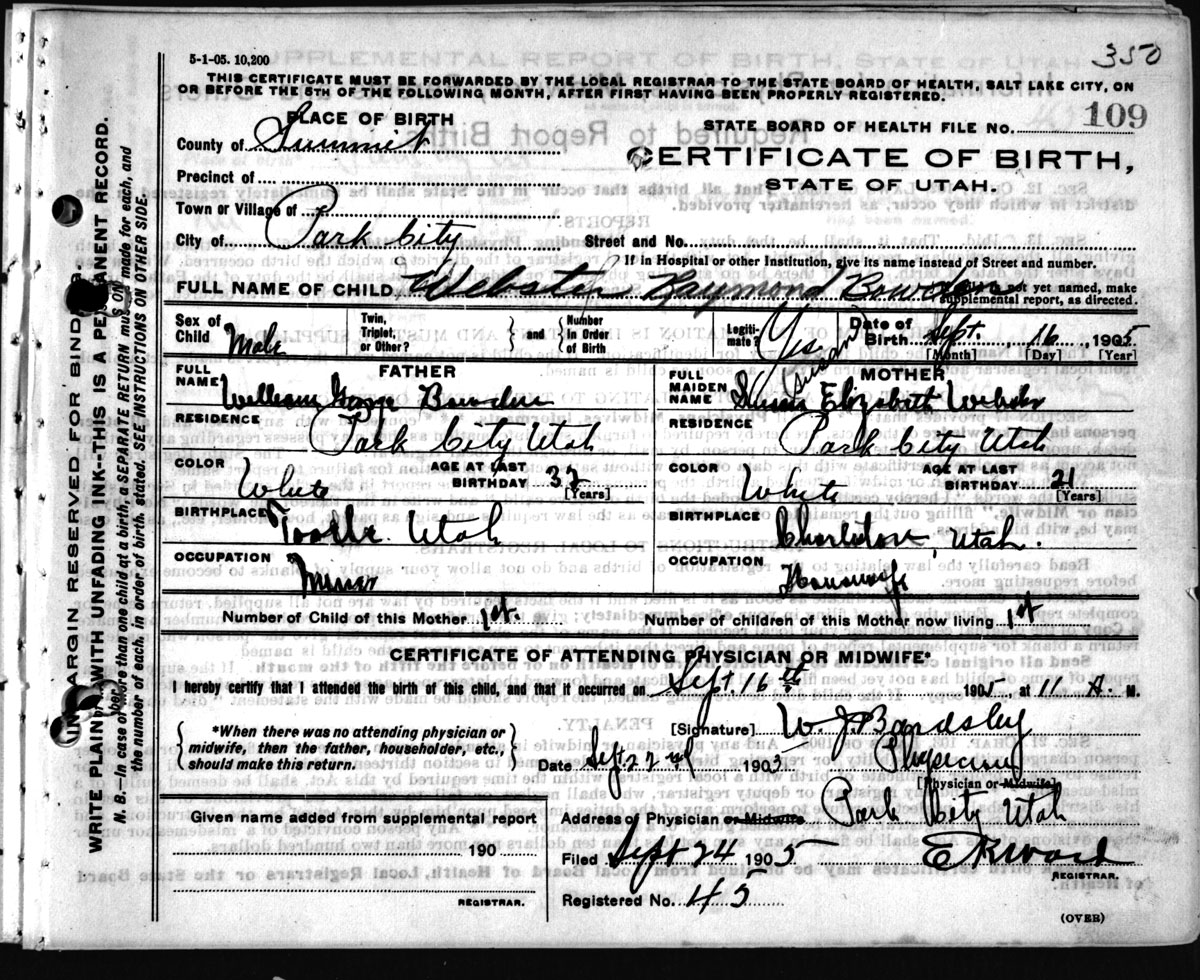 350
5-1-05. 10,200
THIS CERTIFICATE MUST BE FORWARDED BY THE LOCAL REGISTRAR TO THE STATE BOARD OF HEALTH, SALT LAKE CITY, ON
OR BEFORE THE 5TH OF THE FOLLOWING MONTH, AFTER FIRST HAVING BEEN PROPERLY REGISTERED.
PLACE OF BIRTH
STATE BOARD OF HEALTH FILE NO. 109
County of Summit
CERTIFICATE OF BIRTH,
STATE OF UTAH.
Precinct of
Town or Village of
City of Park City Street and No.
If in Hospital or other Institution, give its name instead of Street and number.
FULL NAME OF CHILD Webster Raymond Bowden not yet named, make
supplemental report, as directed.
Sex of Child Male Twin, Triplet, or Other? and Number in Order of Birth Legiti-mate? Yes Date of Birth Sept. 16, 1905
[Month] [Day] [Year]
FATHER
FULL NAME William George Bowden
MOTHER
(Susan)
FULL MAIDEN NAME Elizabeth Webster
RESIDENCE Park City Utah
RESIDENCE Park City Utah
COLOR White AGE AT LAST BIRTHDAY 32 [Years]
COLOR White AGE AT LAST BIRTHDAY 21 [Years]
BIRTHPLACE Tooele Utah
BIRTHPLACE Charleston, Utah.
OCCUPATION Miner
OCCUPATION Housewife
Number of Child of this Mother 1st. Number of children of this Mother now living 1st
CERTIFICATE OF ATTENDING PHYSICIAN OR MIDWIFE*
I hereby certify that I attended the birth of this child, and that it occurred on Sept. 16th 1905, at 11 A. M.
*When there was no attending physician or
midwife, then the father, householder, etc.,
should make this return.
[Signature] W. J. Bardsley
Date Sept 22nd 190 Physician
[Physician or Midwife]
Given name added from supplemental report
190
REGISTRAR.
Address of Physician or Midwife Park City Utah
Filed Sept 24 1905
REGISTRAR.
Registered No. 45
(OVER)
MARGIN RESERVED FOR BINDING.
WRITE PLAINLY WITH UNFADING INK--THIS IS A PERMANENT RECORD.
N. B.--In case of more than one child at a birth, a SEPARATE RETURN must be made for each, and
the number of each, in order of birth, stated. SEE INSTRUCTIONS ON OTHER SIDE.